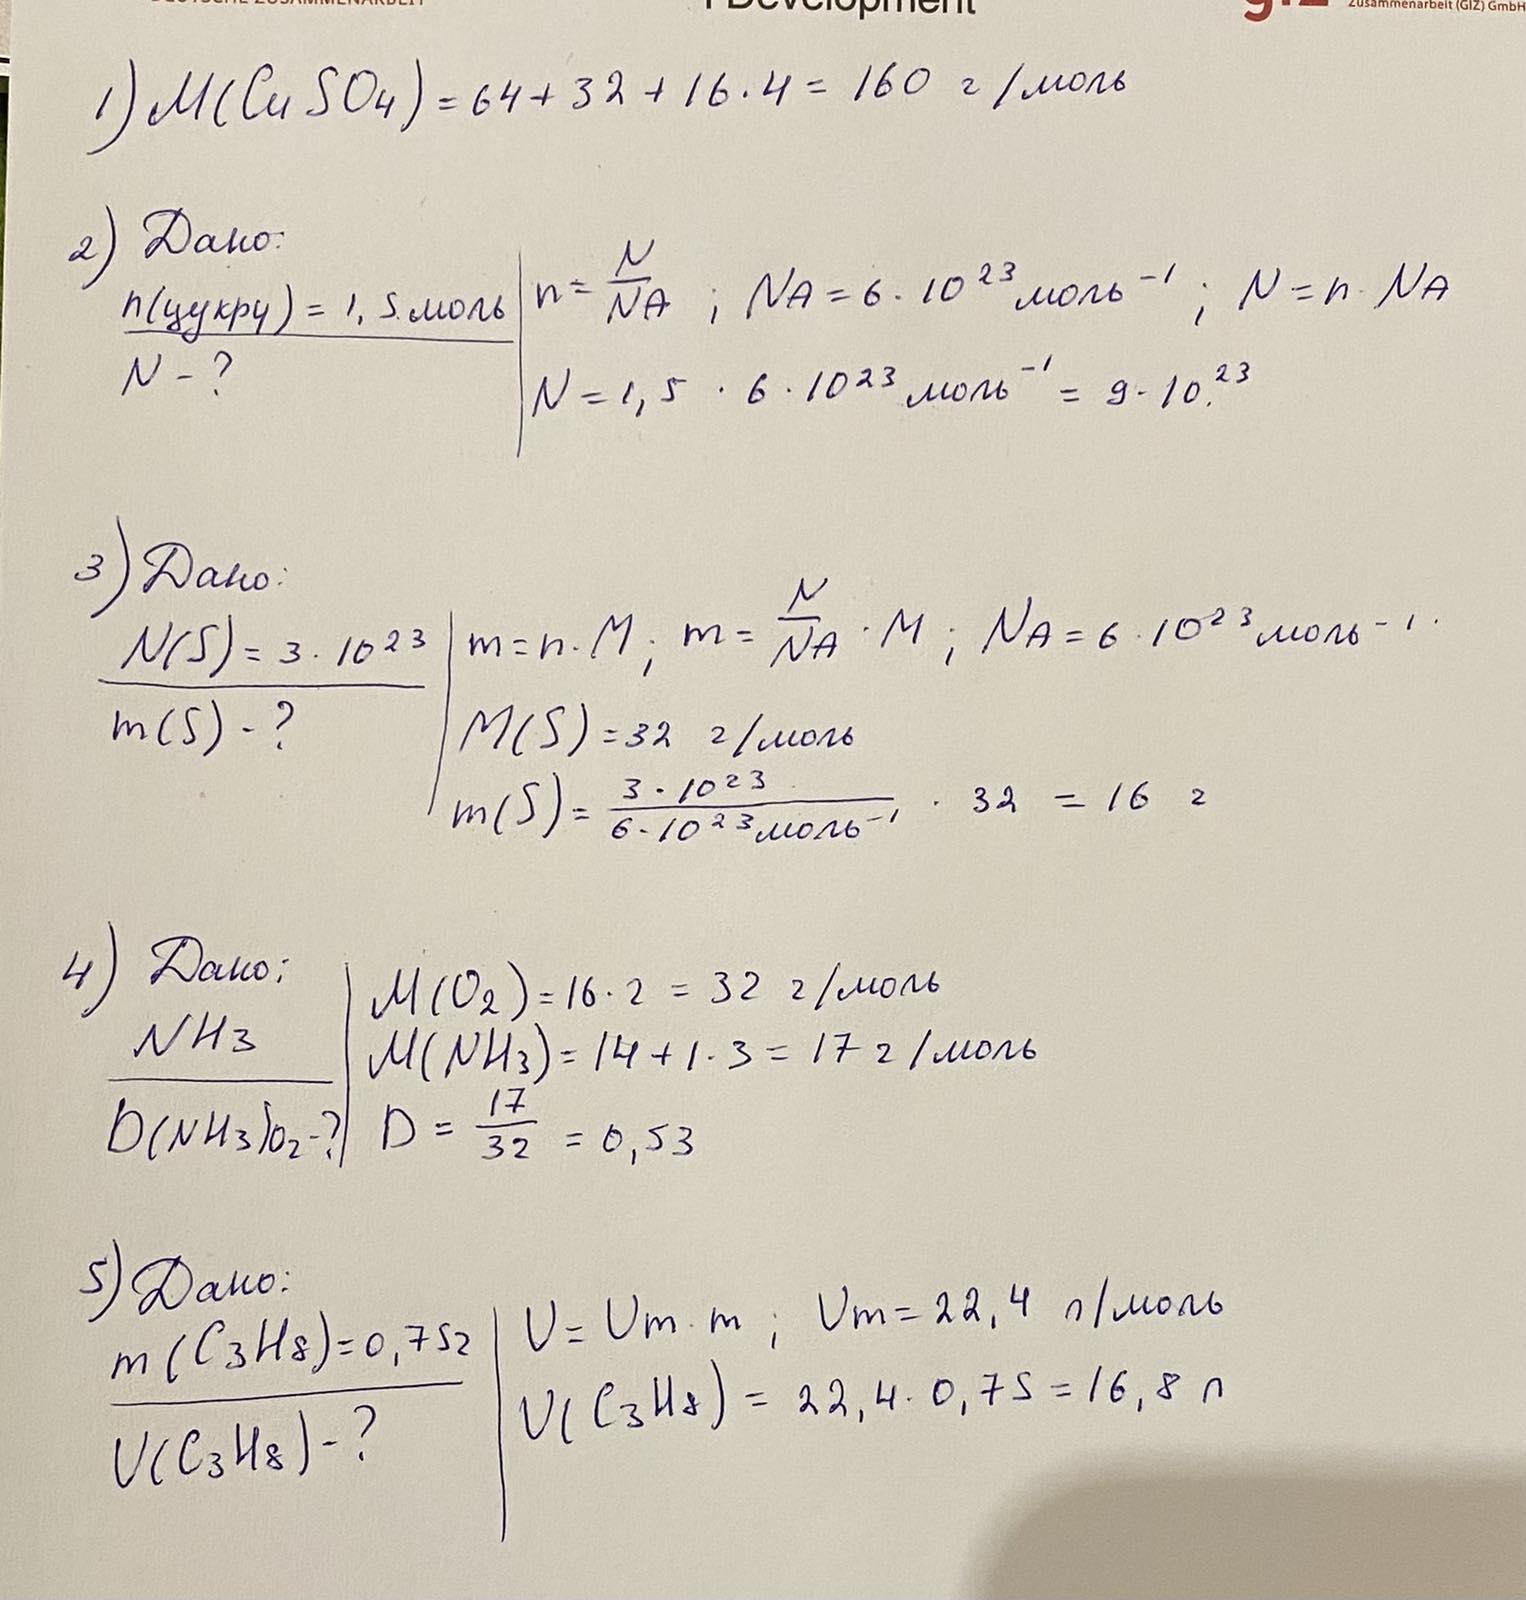 Zusammenarbeit (GIZ) GmbH
1) M(CuSO4) = 64 + 32 + 16 · 4 = 160 г/моль
2) Дано:
n(цукру) = 1,5 моль
N - ?
n = N/NA ; NA = 6 · 10²³ моль⁻¹ ; N = n · NA
N = 1,5 · 6 · 10²³ моль⁻¹ = 9 · 10²³
3) Дано:
N(S) = 3 · 10²³
m(S) - ?
m = n · M ; m = N/NA · M ; NA = 6 · 10²³ моль⁻¹
M(S) = 32 г/моль
m(S) = 3 · 10²³ / 6 · 10²³ моль⁻¹ · 32 = 16 г
4) Дано:
NH3
D(NH3)O2 - ?
M(O2) = 16 · 2 = 32 г/моль
M(NH3) = 14 + 1 · 3 = 17 г/моль
D = 17/32 = 0,53
5) Дано:
m(C3H8) = 0,75г
V(C3H8) - ?
V = Vm · m ; Vm = 22,4 л/моль
V(C3H8) = 22,4 · 0,75 = 16,8 л